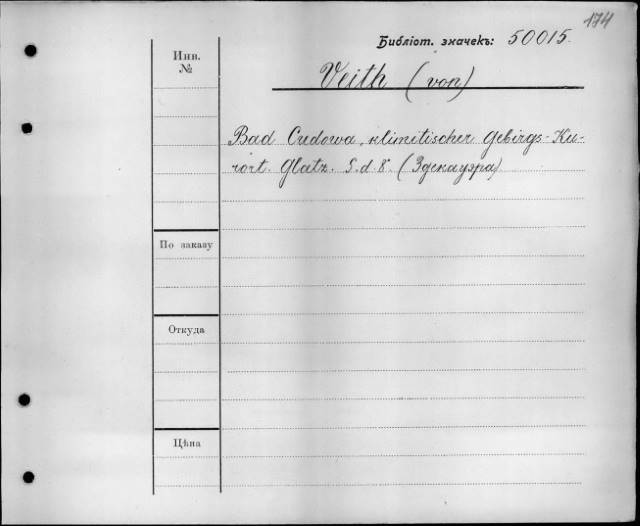 174
Библіот. значекъ: 50015.
Инв. №
Veith (von)
Bad Cudowa, klimitischer Gebirgs-Ku-
rort. Glatz. S. d. 8°. (Здекауэра)
По заказу
Откуда
Цѣна